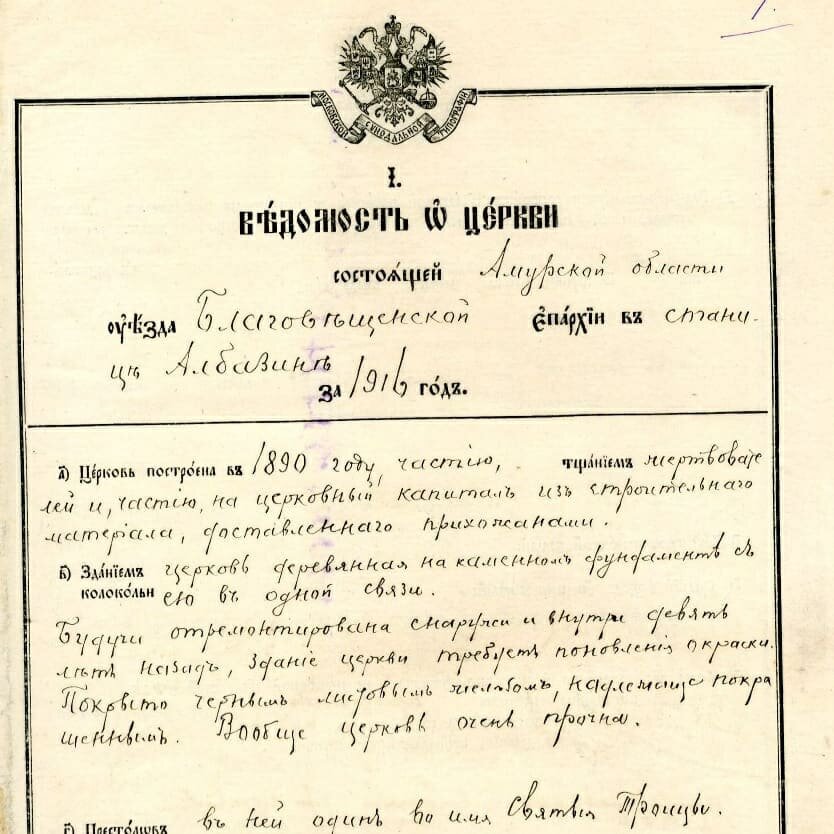 1.
МОСКОВСКОЙ СѴНОДАЛЬНОЙ ТИПОГРАФІИ
І.
ВѢ́ДОМОСТЬ Ѽ ЦЕ́РКВИ
состоѧ́щей Амурской области
ᲂу҆ѣ́зда Благовѣщенской є҆па́рхїи въ стани-
цѣ Албазинѣ
за 1916 го́дъ.
а҃) Це́рковь постро́ена въ 1890 году, частію, тща́нїемъ жертвовате
лей и, частію, на церковный капиталъ изъ строительнаго
матеріала, доставленнаго прихожанами.
б҃) Зда́нїемъ церковь деревянная на каменномъ фундаментѣ съ
колоко́льни ею въ одной связи.
Будучи отремонтирована снаружи и внутри девять
лѣтъ назадъ, зданіе церкви требуетъ поновленія окраски.
Покрыто чернымъ листовымъ желѣзомъ, надлежаще покра
шеннымъ. Вообще церковь очень прочна.
г҃) Престо́лѡвъ въ ней одинъ во имя Святыя Троицы.